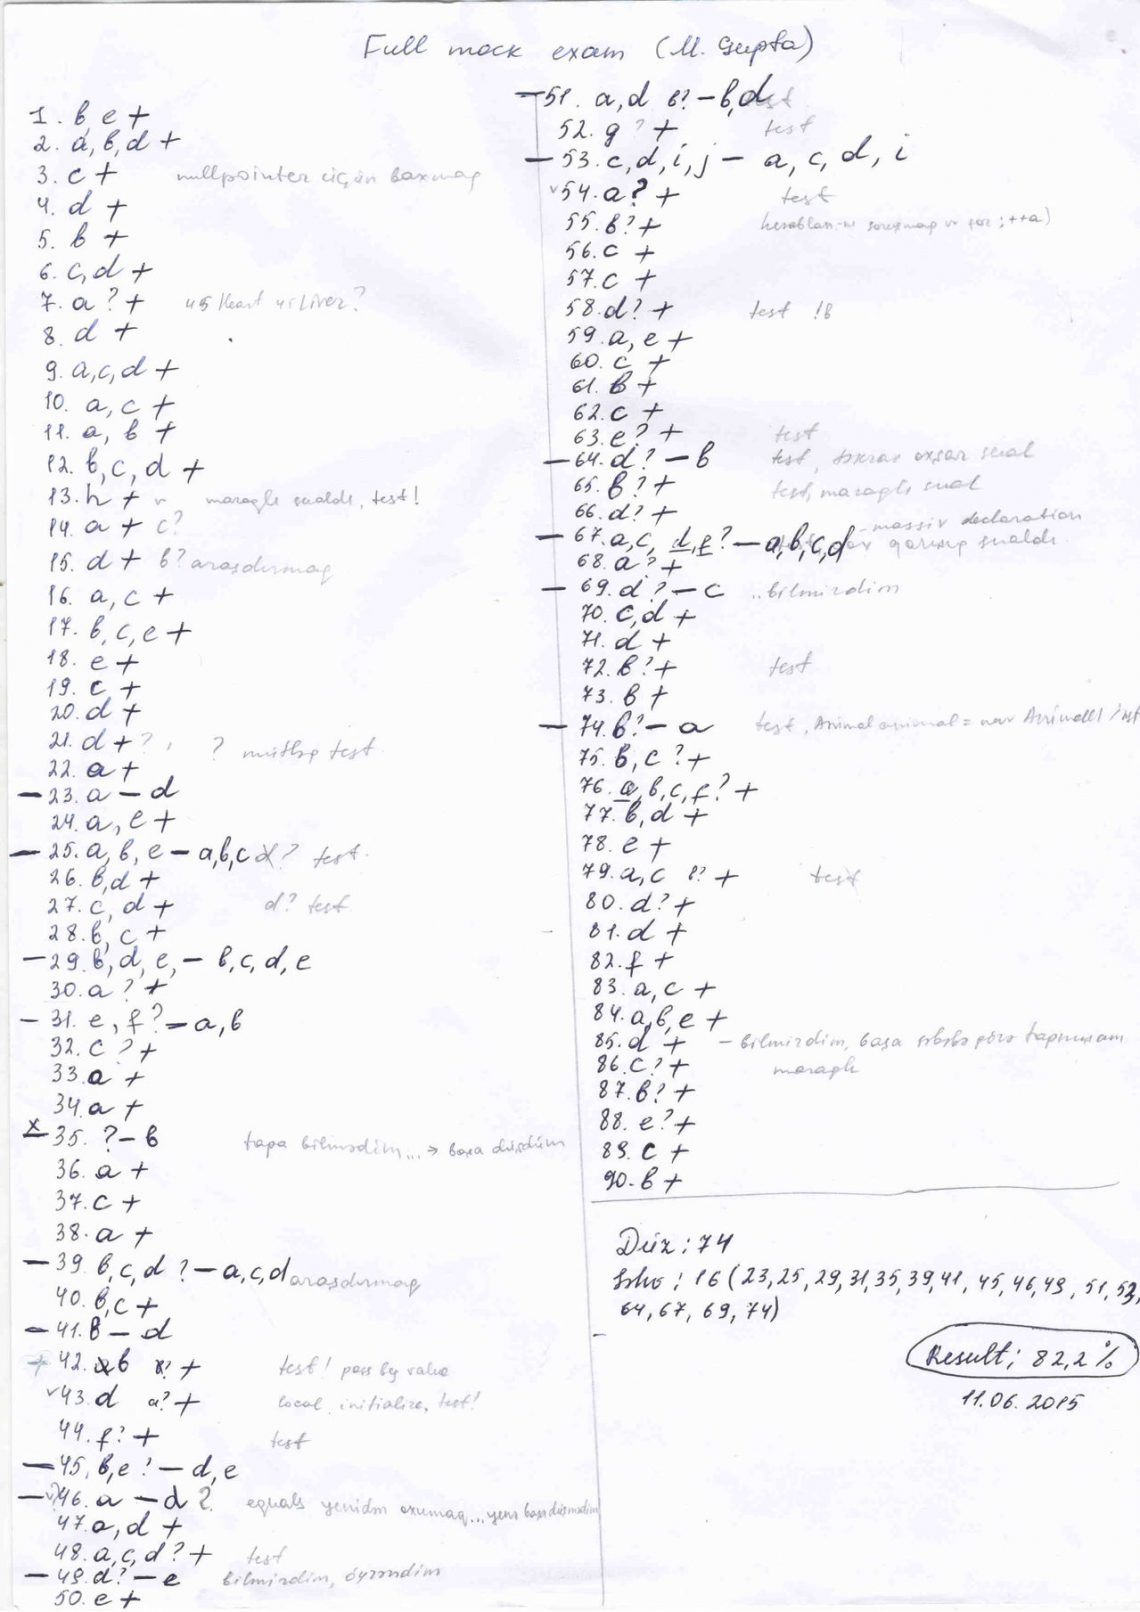 Full mock exam (M. Gupta)
1. b e +
2. a, b, d +
3. c + nullpointer üçün baxmaq
4. d +
5. b +
6. c, d +
7. a ? + us Heart us Liver?
8. d +
9. a, c, d +
10. a, c +
11. a, b +
12. b, c, d +
13. h + v maraqlı sualdı, test!
14. a + c?
15. d + b? araşdırmaq
16. a, c +
17. b, c, e +
18. e +
19. c +
20. d +
21. d + ? , ? mütləq test
22. a +
— 23. a — d
24. a, e +
— 25. a, b, e — a,b,c d? test.
26. b,d +
27. c, d + d? test
28. b, c +
— 29. b, d, e, — b, c, d, e
30. a ? +
— 31. e, f? — a, b
32. c ? +
33. a +
34. a +
x — 35. ? — b tapa bilmədim... → başa düşdüm
36. a +
37. c +
38. a +
— 39. b, c, d ? — a, c, d araşdırmaq
40. b, c +
— 41. b — d
+ 42. b + test! pass by value
v 43. d a? + local initialize, test!
44. f? + test
— 45. b,e ? — d, e
— v? 46. a — d ? equals yenidən oxumaq... yenə başa düşmədim
47. a, d +
48. a, c, d ? + test
— 49. d? — e bilmirdim, öyrəndim
50. e +
— 51. a, d b? — b,d test
52. g ? + test
— 53. c, d, i, j — a, c, d, i
v 54. a? + test
55. b? + ; ++a)
56. c +
57. c +
58. d? + test !b
59. a, e +
60. c +
61. b +
62. c +
63. e? + test
— 64. d? — b test, təkrar oxşar sual
65. b? + test, maraqlı sual
66. d? +
— 67. a, c, d, f? — a,b,c,d - massiv declaration qarışıq sualdı
68. a? +
— 69. d ? — c ..bilmirdim
70. c, d +
71. d +
72. b? + test
73. b +
— 74. b? — a test, Animal animal = new Animal()
75. b, c ? +
76. a, b, c, f? +
77. b, d +
78. e +
79. a, c b? + test
80. d? +
81. d +
82. f +
83. a, c +
84. a, b, e +
85. d + - bilmirdim, başqa səbəbə görə tapmışam
86. c? + maraqlı
87. b? +
88. e? +
89. c +
90. b +
Düz : 74
Səhv : 16 (23, 25, 29, 31, 35, 39, 41, 45, 46, 49, 51, 53,
64, 67, 69, 74)
Result: 82,2 %
11.06.2015